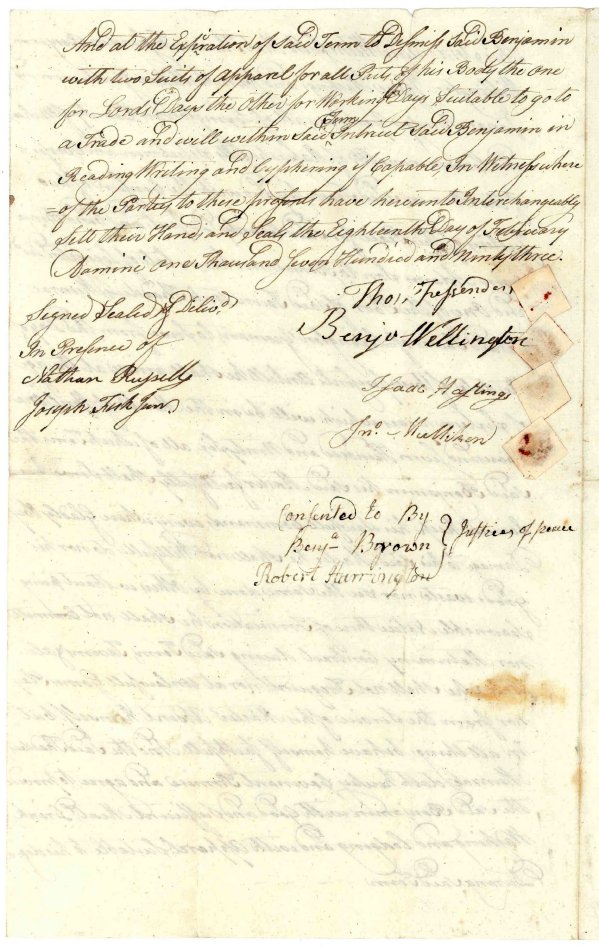 And at the Expiration of said Term to Dismiss said Benjamin
with two Suits of apparel for all Parts of his Body the one
for Lords Days the other for Working Days Suitable to go to
a Trade and will within said Term Instruct Said Benjamin in
Reading Writing and Cyphering if Capable, In Witness where
=of the Parties to these presents have hereunto Interchangeably
Sett their Hands and Seals the Eighteenth Day of February
Domini one Thousand Seven Hundred and Ninty three.
Signed Sealed & Deliv.d
In Presence of
Nathan Russell
Joseph Fisk Jun.
Thos. Fessenden
Benj.a Wellington
Isaac Hastings
Jno. Mulliken
Consented to By
Benj.a Brown
Robert Harrington
} Justices of peace